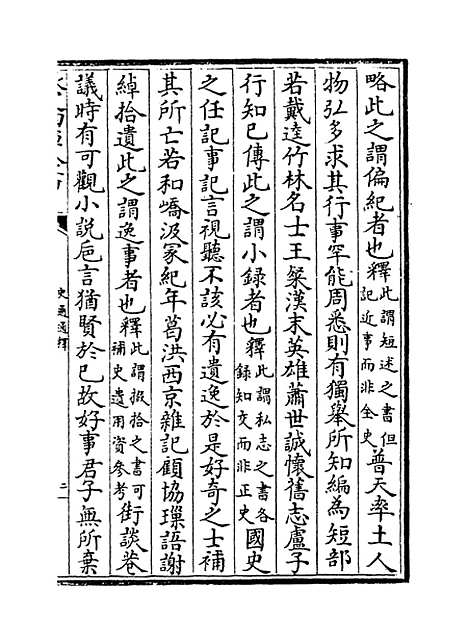 略此之謂偏紀者也釋此謂短述之書但記近事而非全史普天率土人
物弘多求其行事罕能周悉則有獨舉所知編為短部
若戴逵竹林名士王粲漢末英雄蕭世誠懷舊志盧子
行知已傳此之謂小録者也釋此謂私志之書各録知交而非正史國史
之任記事記言視聽不該必有遺逸於是好奇之士補
其所亡若和嶠汲冢紀年葛洪西京雜記顧協璅語謝
綽拾遺此之謂逸事者也釋此謂掇拾之書可補史遺用資參考街談巷
議時有可觀小說巵言猶賢於已故好事君子無所棄
史通通釋
二